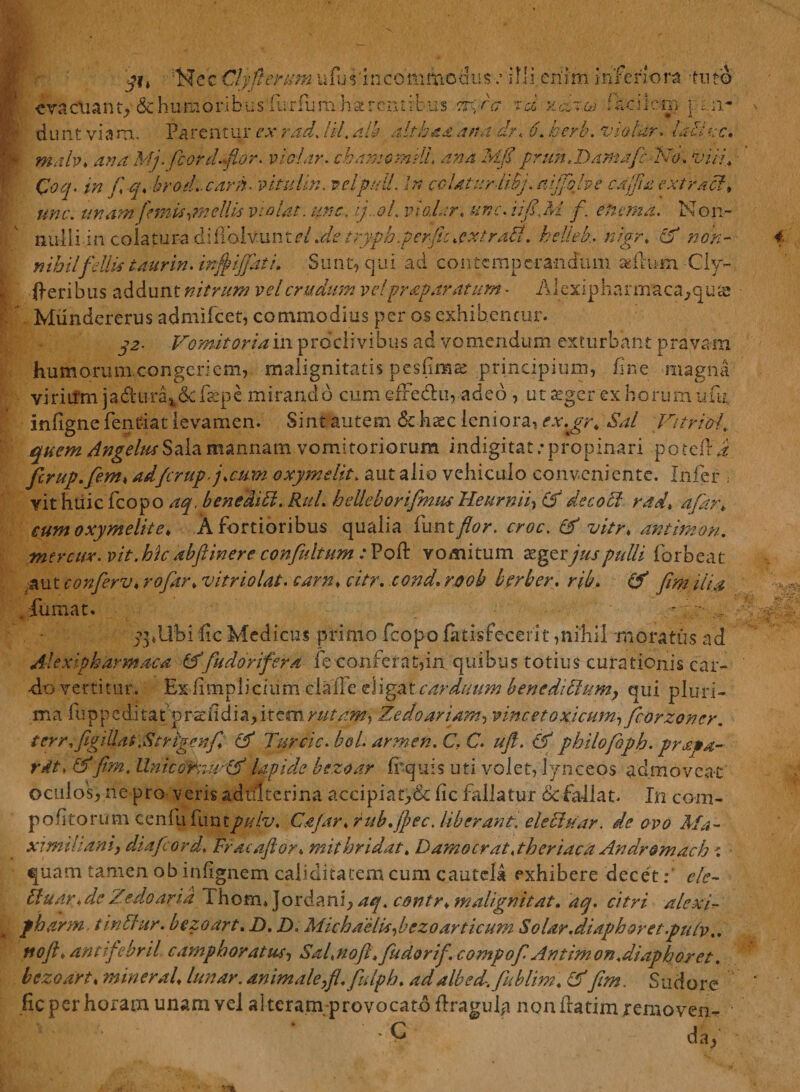 31. Nec Clysterum usus incommodus: illi enim inferiora tutò
evacuant, & humoribus sursum hærentibus facilem pan-
dunt viam. Parentur ex rad. lil. alb althææ ana dr. 6. herb. violar.
malv. ana Mj. scord. flor. violar. chamomill. ana Mß prun. Damasc. No. viii.
Coq. in s. q. brod. carn. vitulin. vel pull. In colatur. libj. dissolve cassiæ extract,
unc. unam semis, mellis violat. unc. ij. ol. violar. unc. iiß. M f. enema. Non-
nulli in colatura dissolvunt el. de tryph. persic. extract. helleb. nigr. & non-
nihil fellis taurin. inspissati. Sunt, qui ad contemperandum æstum Cly-
steribus addunt nitrum vel crudum vel præparatum - Alexipharmaca, quæ
Mundererus admiscet, commodius per os exhibentur.
32. Vomitoria in proclivibus ad vomendum exturbant pravam
humorum congeriem, malignitatis pessimæ principium, sine magna
virium jactura, & sæpè mirando cum effectu, adeò, ut æger ex horum usu
insigne sentiat levamen. Sint autem & hæc leniora, ex. gr. Sal Vitriol.
quem Angelus Sala mannam vomitoriorum indigitat: propinari potest à
scrup. sem. ad scrup. j. cum oxymelit. aut alio vehiculo conveniente. Inser
vit huic scopo aq. benedict. Rul. helleborismus Heurnii, & decoct rad. asar.
cum oxymelite. A fortioribus qualia sunt flor. croc. & vitr. antimon.
mercur. vit. hic abstinere consultum: Post vomitum æger jus pulli sorbeat
aut conserv. rosar. vitriolat. carn. citr. cond. roob berber. rib. & similia
sumat.
33. Ubi sic Medicus primo scopo satisfecerit, nihil moratus ad
Alexipharmaca & sudorifera se conferat, in quibus totius curationis car-
do vertitur. Ex simplicium classe eligat carduum benedictum, qui pluri-
ma suppeditat præsidia, item rutam, Zedoariam, vincetoxicum, scorzoner.
terr. sigillat. Strigens. & Turcic. bol. armen. C. C. ust. & philosoph. præpa-
rat. & sim. Unicornu & lapide bezoar si quis uti volet, lynceos admoveat
oculos, ne pro veris adulterina accipiat, & sic fallatur & fallat. In com-
positorum censu sunt pulv. Cæsar. rub. spec. liberant. electuar. de ovo Ma-
ximiliani, diascord. Fracastor. mithridat. Damocrat. theriaca Andromach:
quam tamen ob insignem caliditatem cum cautelâ exhibere decet: ele-
ctuar. de Zedoariâ Thom. Jordani, aq. contr. malignitat. aq. citri alexi-
pharm. tinctur. bezoart. D. D. Michaëlis, bezoarticum Solar. diaphoret. pulv..
nost. antifebril camphoratus, Sal. nost. sudorif. compos. Antimon. diaphoret.
bezoart. mineral. lunar. animale, fl. sulph. ad albed. sublim. & sim. Sudore
sic per horam unam vel alteram provocatô stragula non statim removen-
C da,